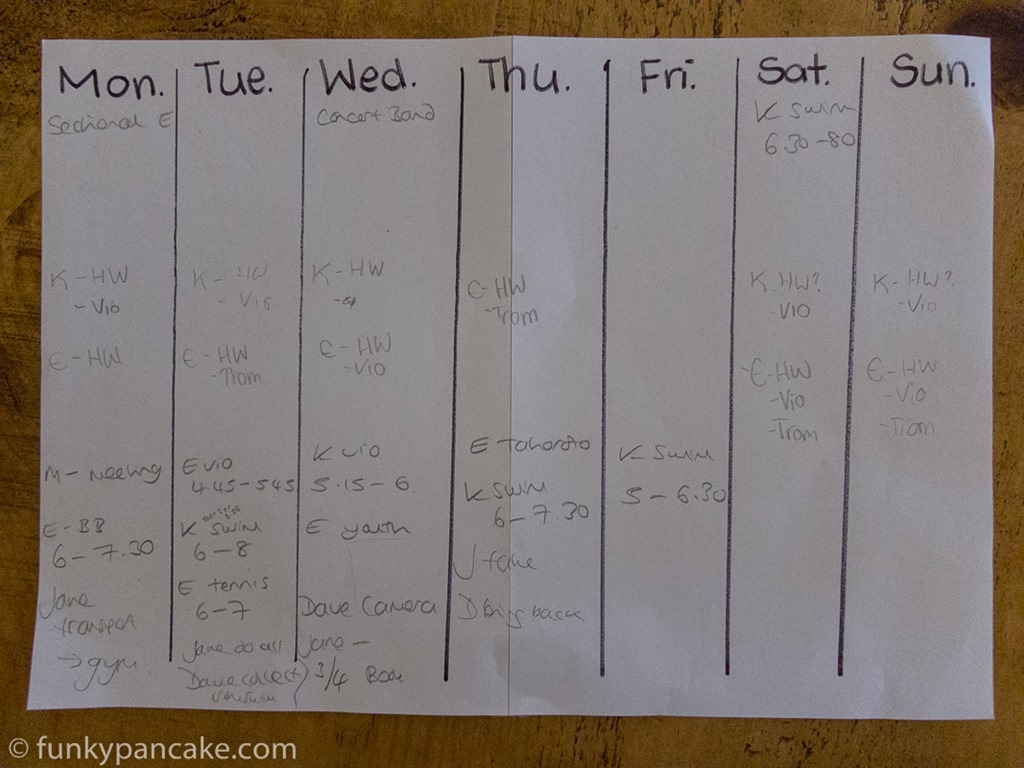 Mon.
Sectional E
K - HW
- Vio
E - HW
M - meeting
E - BB
6 - 7.30
Jane
transport
→ gym
Tue.
K - HW
- Vio
E - HW
- Trom
E vio
4.45 - 545
K swim
6 - 8
E tennis
6 - 7
Jane do all
Dave collect
Wed.
Concert Band
K - HW
E - HW
- Vio
K vio
5.15 - 6
E youth
Dave Camera
Jane -
3/4 Book
Thu.
E - HW
- Trom
E
K swim
6 - 7.30
J take
D bring back
Fri.
K Swim
5 - 6.30
Sat.
K swim
6.30 - 80
K. HW?
- VIO
- E - HW
- Vio
- Trom
Sun.
K - HW?
- Vio
E - HW
- Vio
- Trom
© funkypancake.com